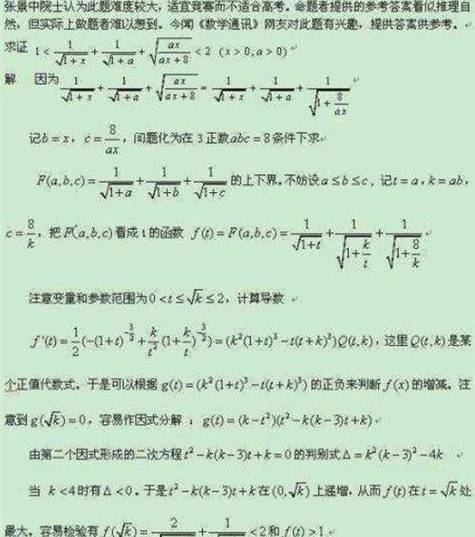 张景中院士认为此题难度较大，适宜竞赛而不适合高考。命题者提供的参考答案看似推理自
然，但实际上做题者难以想到。今闻《数学通讯》网友对此题有兴趣，提供答案供参考。
求证 1 < 1/√(1+x) + 1/√(1+a) + √(ax/(ax+8)) < 2 (x>0,a>0)
解 因为 1/√(1+x) + 1/√(1+a) + √(ax/(ax+8)) = 1/√(1+x) + 1/√(1+a) + 1/√(1+8/(ax))
记b=x，c=8/(ax)，问题化为在3正数abc=8条件下求
F(a,b,c)=1/√(1+a)+1/√(1+b)+1/√(1+c) 的上下界。不妨设a≤b≤c，记t=a,k=ab，
c=8/k，把F(a,b,c)看成t的函数 f(t)=F(a,b,c)=1/√(1+t)+1/√(1+k/t)+1/√(1+8/k)
注意变量和参数范围为0<t≤√k≤2，计算导数
f'(t)=1/2(-(1+t)^(-3/2)+k/t²(1+k/t)^(-3/2))=(k²(1+t)³-t(t+k)³)Q(t,k)，这里Q(t,k)是某
个正值代数式。于是可以根据g(t)=(k²(1+t)³-t(t+k)³)的正负来判断f(x)的增减。注
意到g(√k)=0，容易作因式分解：g(t)=(k-t²)(t²-k(k-3)t+k)
由第二个因式形成的二次方程t²-k(k-3)t+k=0的判别式Δ=k²(k-3)²-4k
当 k<4时有Δ<0。于是t²-k(k-3)t+k在(0,√k)上递增，从而f(t)在t=√k处
最大，容易检验有f(√k)=2/√(1+√k)+1/√(1+8/k)<2和f(t)>1